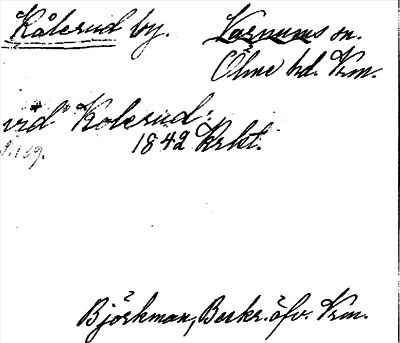 Kålerud by. Varnums sn.
Ölme hd. Vrm.
"vid Kolerud:
1842 Krkt.
s. 139.
Björkman, Beskr. öfv. Vrm.